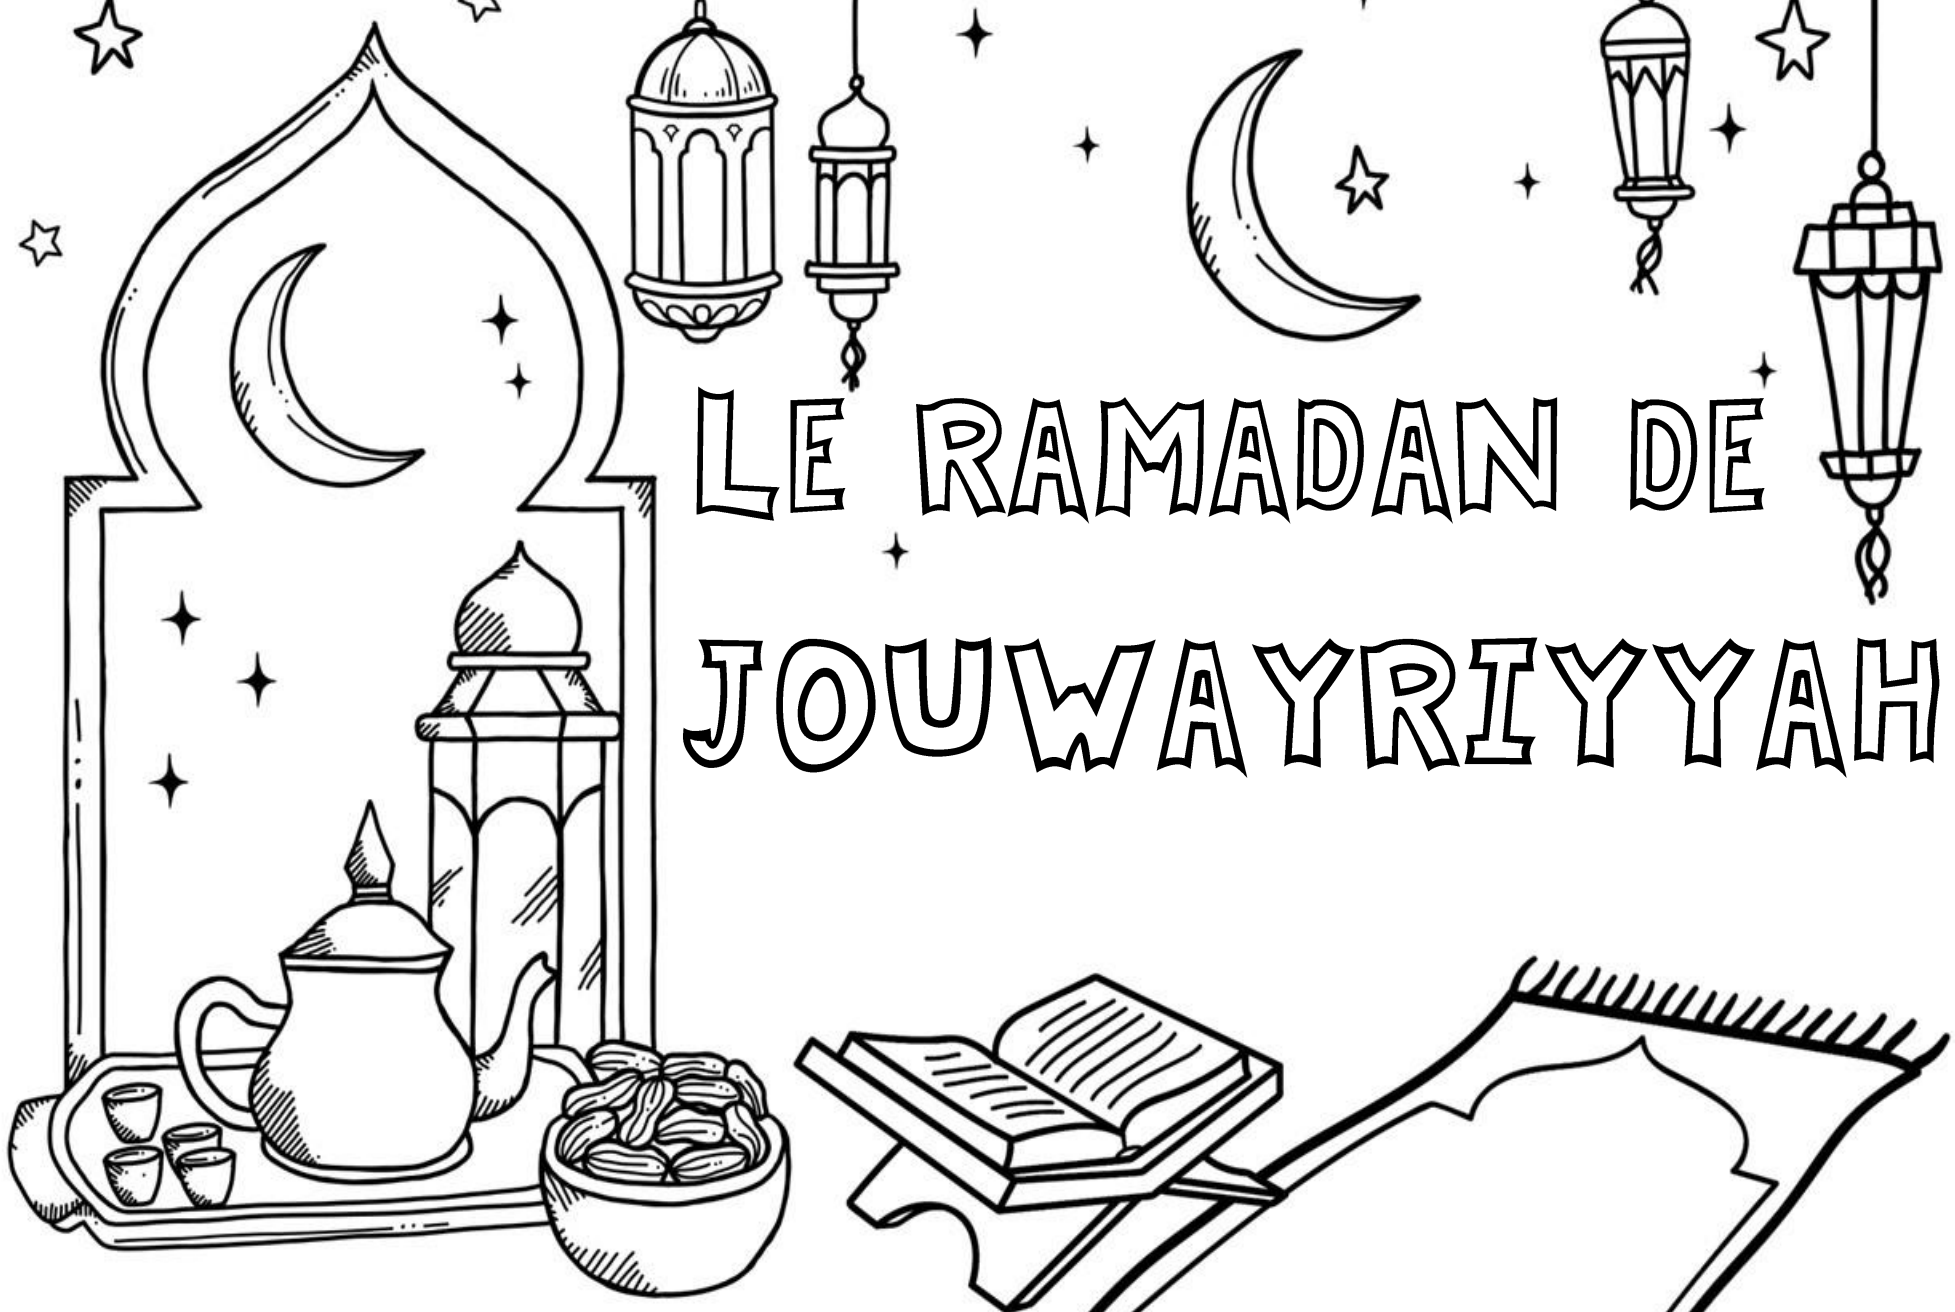 LE RAMADAN DE
JOUWAYRIYYAH